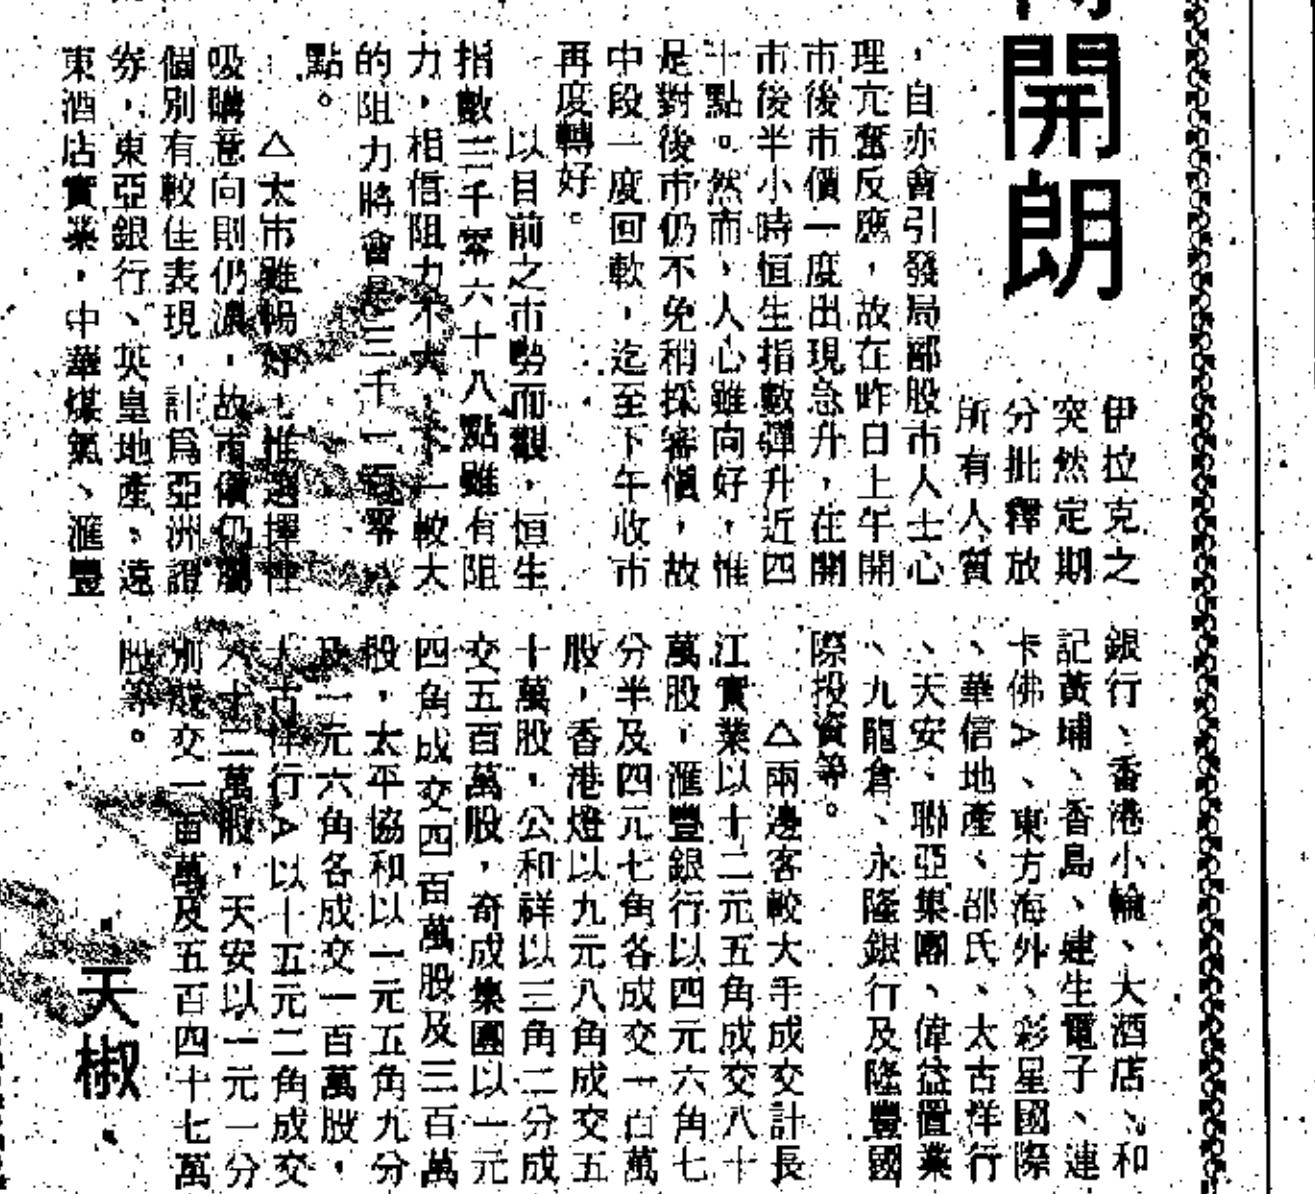 開朗
伊拉克之
突然定期
分批釋放
所有人質
，自亦會引發局部股市人士心
理亢奮反應，故在昨日上午開
市後市價一度出現急升，在開
市後半小時恒生指數彈升近四
十點。然而，人心雖向好，惟
是對後市仍不免稍採審慎，故
中段一度回軟，迄至下午收市
再度轉好。
以目前之市勢而觀，恒生
指數三千零六十八點雖有阻
力，相信阻力不大，較大
的阻力將會是三千一百零八
點。
△大市雖暢好，惟選擇性
吸購意向則仍濃，故市價仍屬
個別有較佳表現，計爲亞洲證
券，東亞銀行、英皇地產、遠
東酒店實業，中華煤氣、滙豐
銀行、香港小輪、大酒店、和
記黃埔、香島、建生電子、連
卡佛A、東方海外、彩星國際
、華信地產、邵氏、太古洋行
、天安、聯亞集團、偉益置業
、九龍倉、永隆銀行及隆豐國
際投資等。
△兩邊客較大手成交計長
江實業以十二元五角成交八十
萬股，滙豐銀行以四元六角七
分半及四元七角各成交一百萬
股，香港燈以九元八角成交五
十萬股，公和祥以三角二分成
交五百萬股，奇成集團以一元
四角成交四百萬股及三百萬
股，太平協和以一元五角九分
及一元六角各成交一百萬股，
太古洋行A以十五元二角成交
六十二萬股，天安以一元一分
別成交一百萬及五百四十七萬
股等。
·天椒·